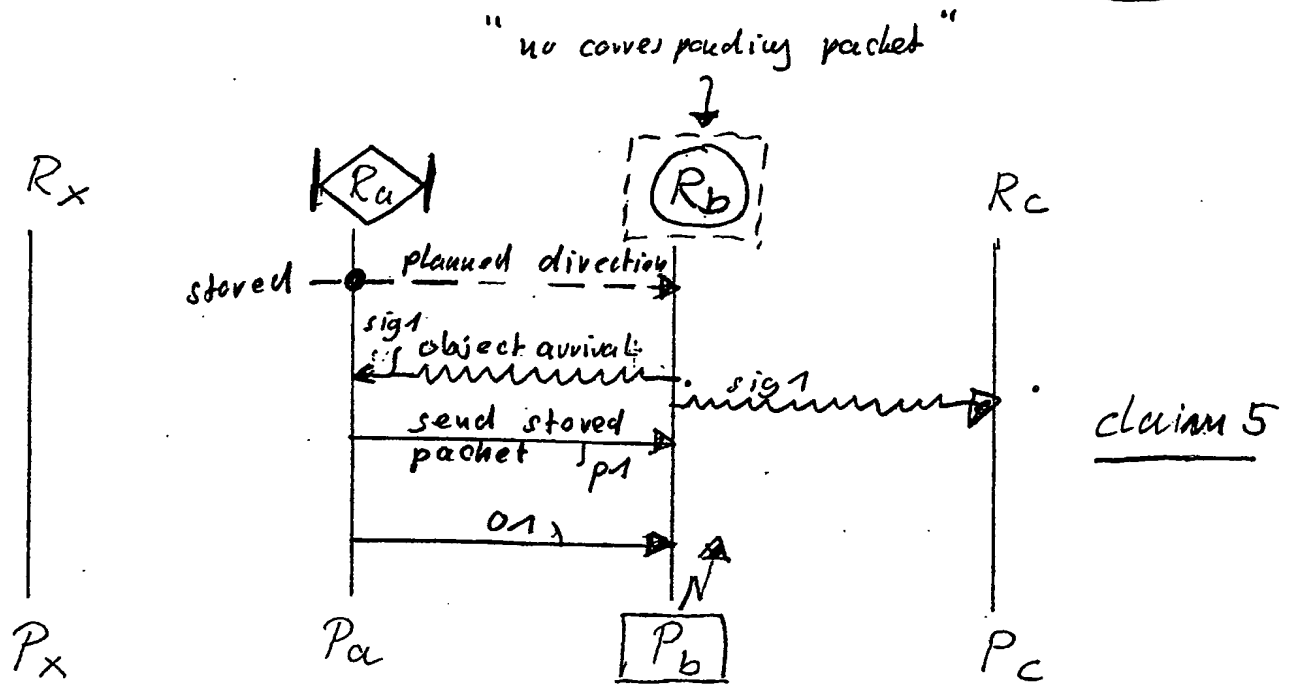 "no corresponding packet"
Rx
Ra
Rb
Rc
stored
planned direction
sig1
object arrival
sig1
send stored
packet
p1
claim 5
01
Px
Pa
Pb
Pc